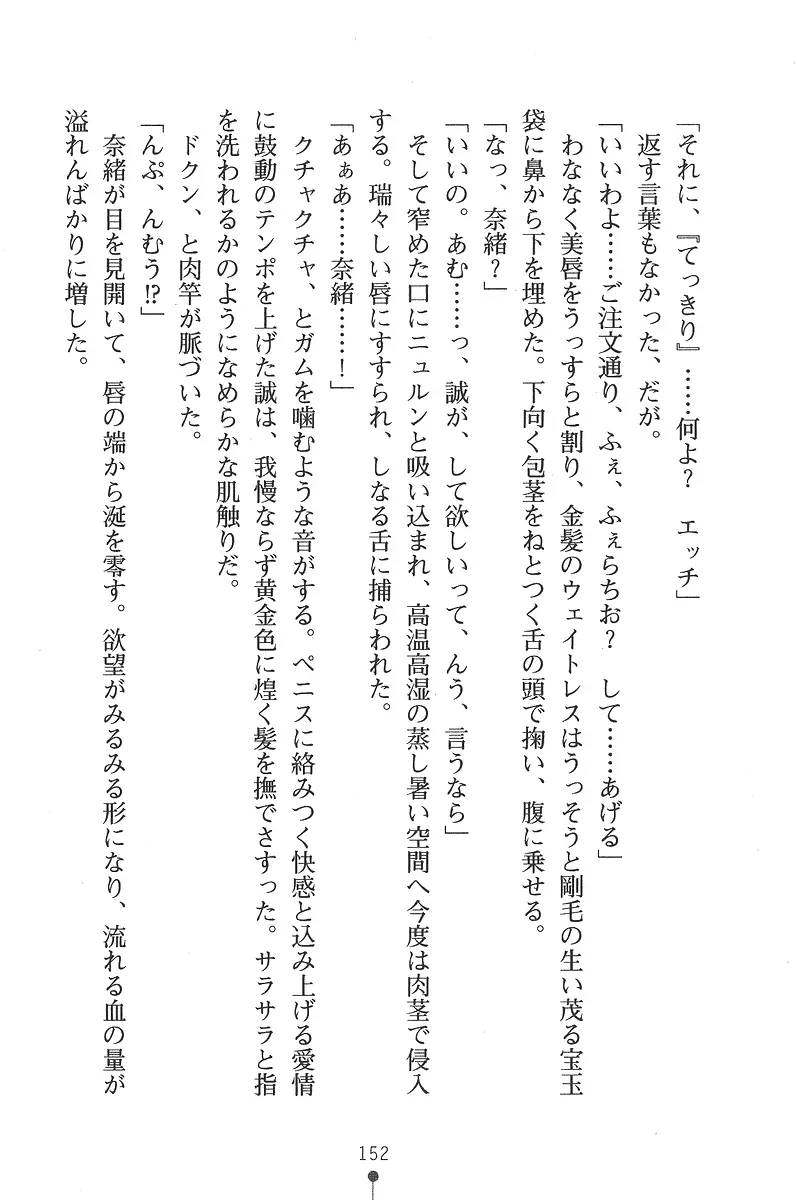 「それに、『てっきり』……何よ？　エッチ」
返す言葉もなかった、だが。
「いいわよ……ご注文通り、ふぇ、ふぇらちお？　して……あげる」
わななく美唇をうっすらと割り、金髪のウェイトレスはうっそうと剛毛の生い茂る宝玉
袋に鼻から下を埋めた。下向く包茎をねとつく舌の頭で掬い、腹に乗せる。
「なっ、奈緒？」
「いいの。あむ……っ、誠が、して欲しいって、んう、言うなら」
そして窄めた口にニュルンと吸い込まれ、高温高湿の蒸し暑い空間へ今度は肉茎で侵入
する。瑞々しい唇にすすられ、しなる舌に捕らわれた。
「あぁあ……奈緒……！」
クチャクチャ、とガムを噛むような音がする。ペニスに絡みつく快感と込み上げる愛情
に鼓動のテンポを上げた誠は、我慢ならず黄金色に煌く髪を撫でさすった。サラサラと指
を洗われるかのようになめらかな肌触りだ。
ドクン、と肉竿が脈づいた。
「んぷ、んむう!?」
奈緒が目を見開いて、唇の端から涎を零す。欲望がみるみる形になり、流れる血の量が
溢れんばかりに増した。
152